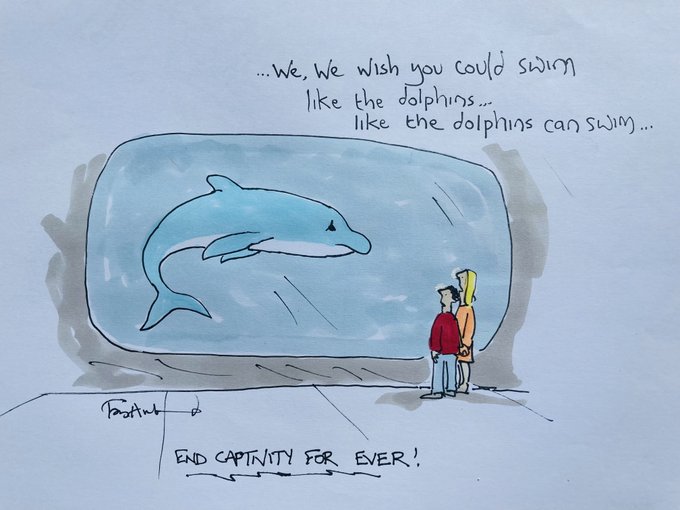 ...We, We wish you could swim
like the dolphins...
like the dolphins can swim...
END CAPTIVITY FOR EVER!